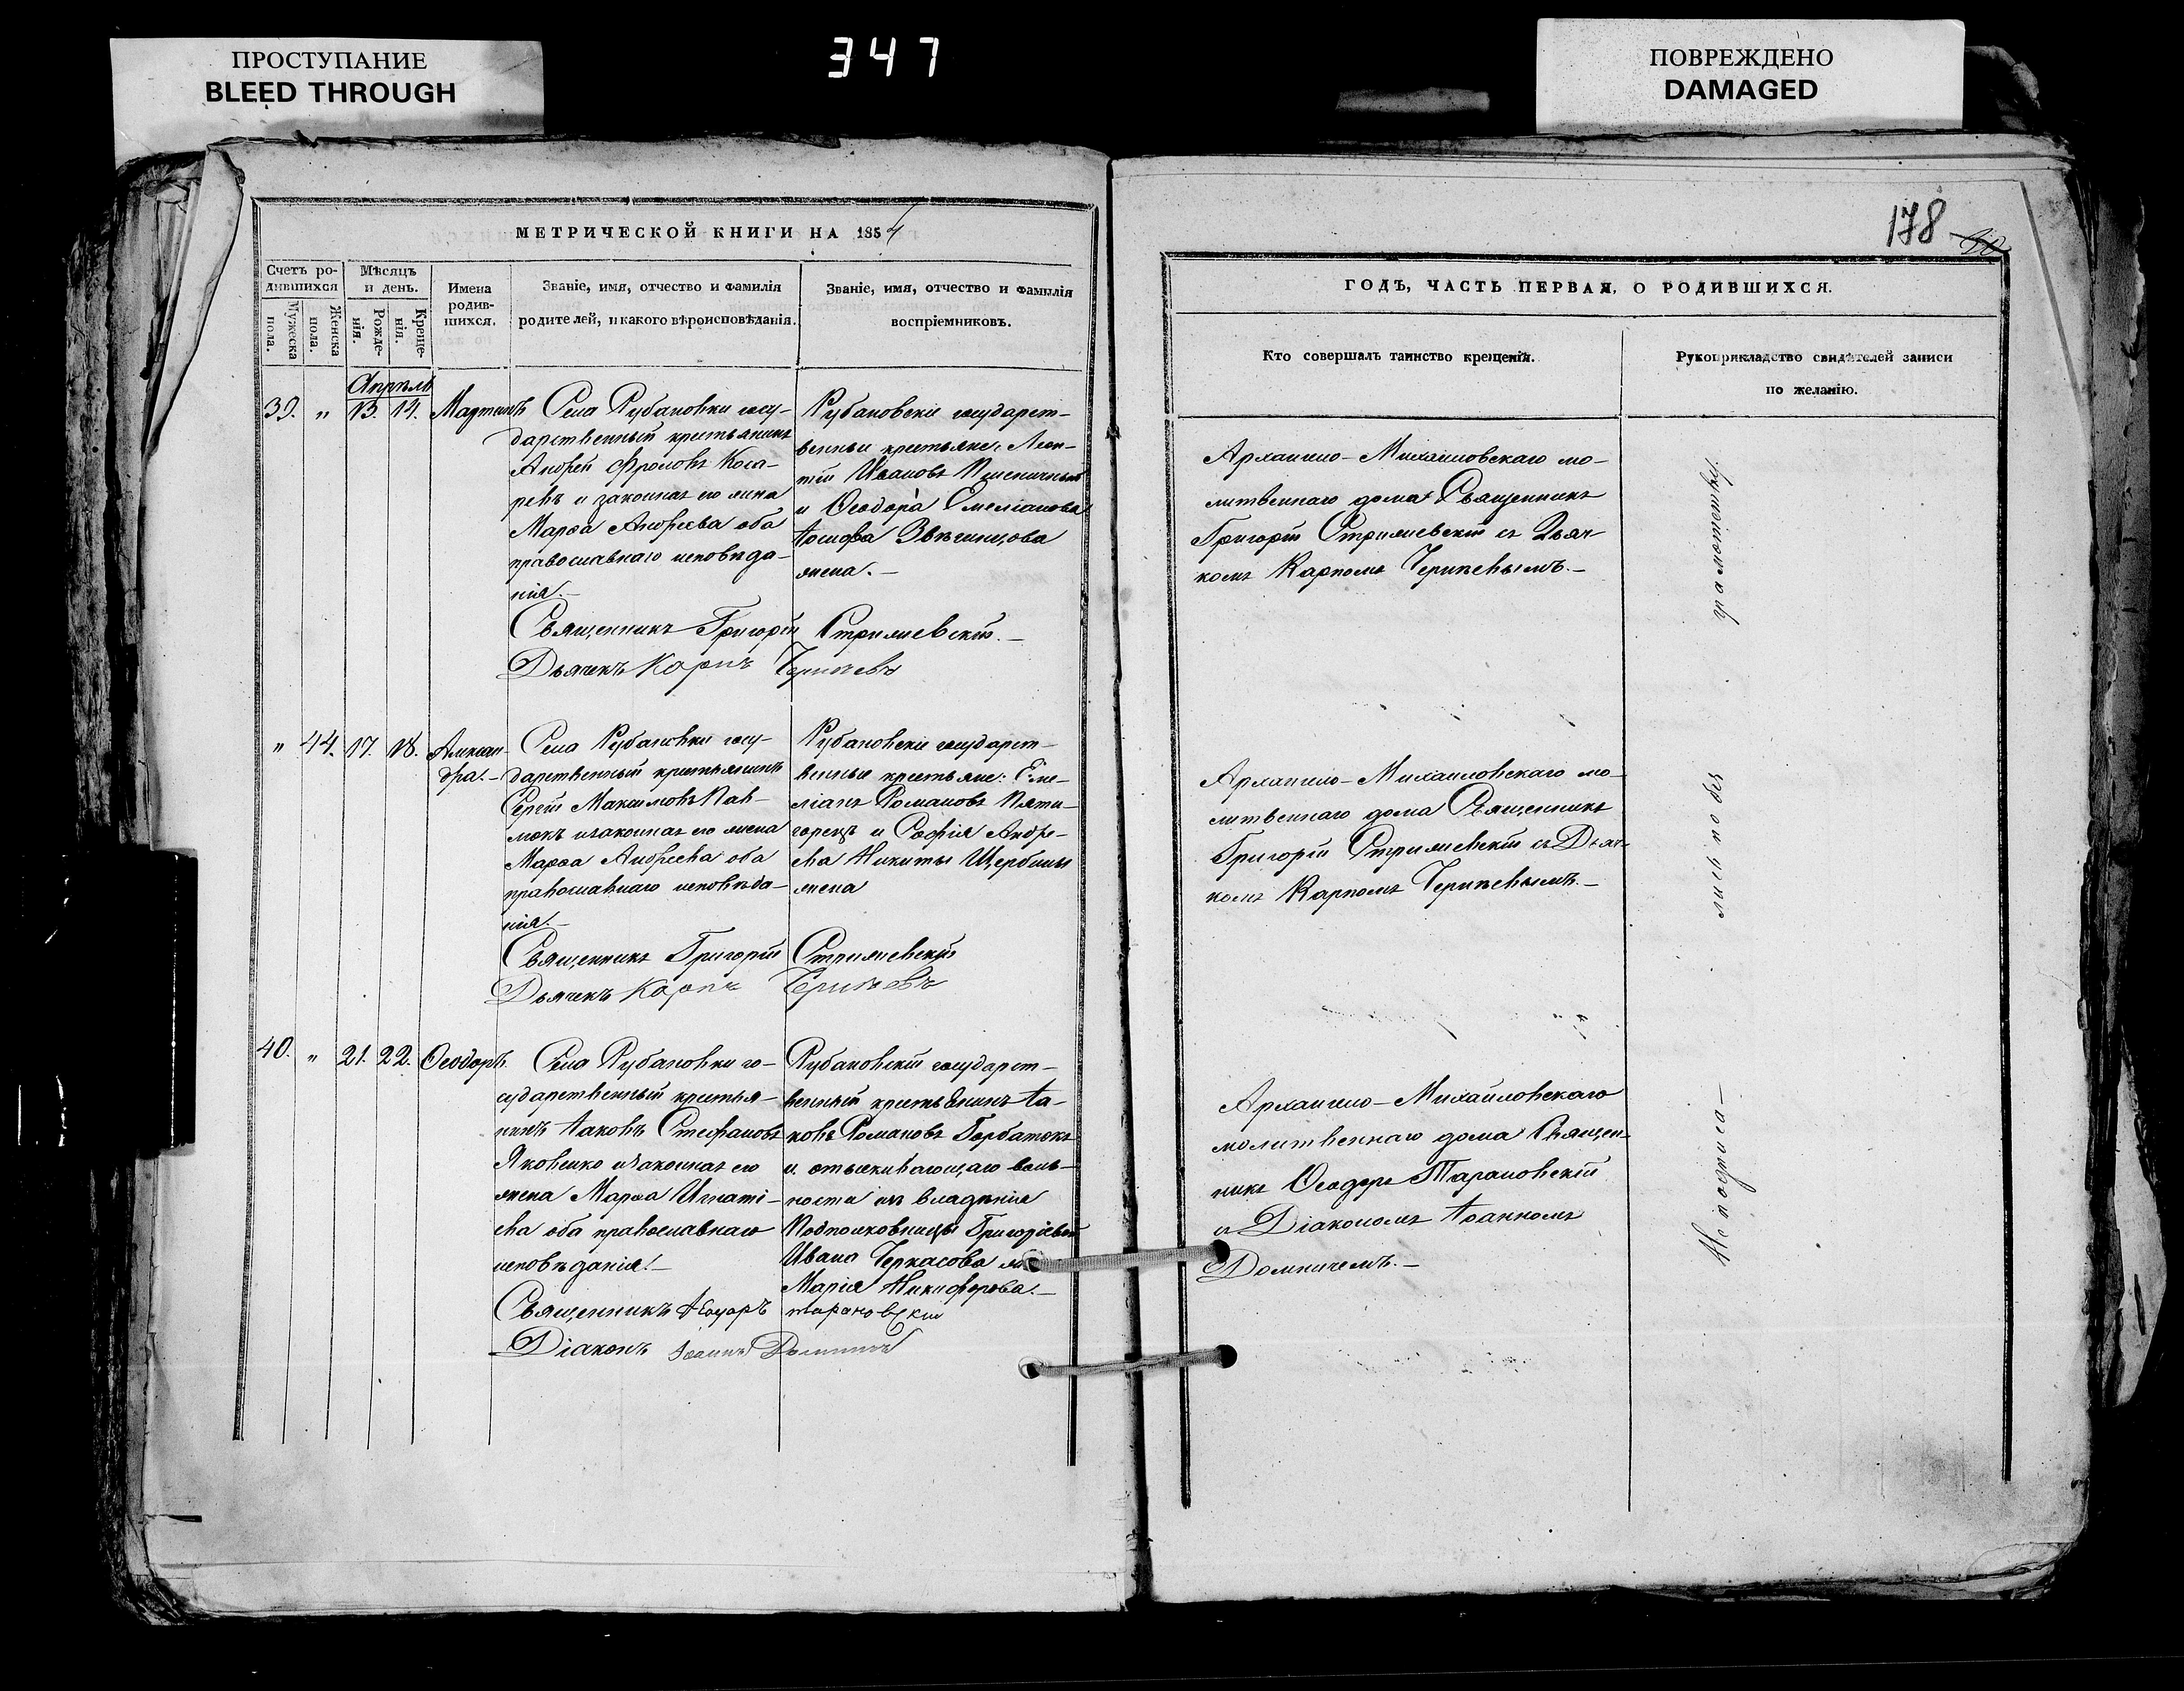 ПРОСТУПАНИЕ
BLEED THROUGH
347
ПОВРЕЖДЕНО
DAMAGED
МЕТРИЧЕСКОЙ КНИГИ НА 1854
Счетъ ро-
дившихся
Мужеска пола.
Женска пола.
Мѣсяцъ
и день.
Рожде-
нія.
Креще-
нія.
Имена
родив-
шихся.
Званіе, имя, отчество и фамилія
родителей, и какого вѣроисповѣданія.
Званіе, имя, отчество и фамилія
воспріемниковъ.
Апрѣль
39. " 13. 14. Мартинъ
Села Рубановки госу-
дарственный крестьянинъ
Андрей Фроловъ Коса-
ревъ и законная его жена
Марѳа Андреева оба
православнаго исповѣда-
нія.-
Рубановскіе государст-
венныи крестьяне: Леон-
тій Ивановъ Пшеничный
и Ѳеодора Емеліанова
Іосифа Звѣгинцова
жена.-
Священникъ Григорій Стрижевскій.-
Дьячекъ Карпъ
" 44. 17. 18. Алексан-
дра.-
Села Рубановки госу-
дарственный крестьянинъ
Сергій Максимовъ Пав-
люкъ изаконная его жена
Марѳа Андреева оба
православнаго исповѣда-
нія.-
Рубановскіе государст-
венные крестьяне: Еме-
ліанъ Романовъ Пяти-
горецъ и Софія Андре-
ева Никиты Щербины
жена
Священникъ Григорій Стрижевскій
Дьячекъ Карпъ
40. " 21. 22. Ѳеодоръ.
Села Рубановки го-
сударственный крестья-
нинъ Іаковъ Стефановъ
Яковенко изаконная его
жена Марѳа Игнаті-
ева оба православнаго
исповѣданія.-
Рубановскій государст-
венный крестьянинъ Іа-
ковъ Романовъ Горбатюкъ
и отыскивающаго воль-
ности изъ владѣнія
Подполковницы Григоріевой
Ивана Черкасова
Марія Никифорова.-
Священникъ Ѳеодоръ Тарановскій
Діаконъ Іоаннъ
178
ГОДЪ, ЧАСТЬ ПЕРВАЯ, О РОДИВШИХСЯ.
Кто совершалъ таинство крещенія.
Рукоприкладство свидѣтелей записи
по желанію.
Архангело-Михаиловскаго мо-
литвеннаго дома Священникъ
Григорій Стрижевскій съ Дьяч-
комъ Карпомъ
Архангело-Михаиловскаго мо-
литвеннаго дома Священникъ
Григорій Стрижевскій съ Дьяч-
комъ Карпомъ
Архангело-Михайловскаго
молитвеннаго дома Священ-
никъ Ѳеодоръ Тарановскій
съ Діакономъ Іоанномъ
Не подписа-
лись по без
грамотству.